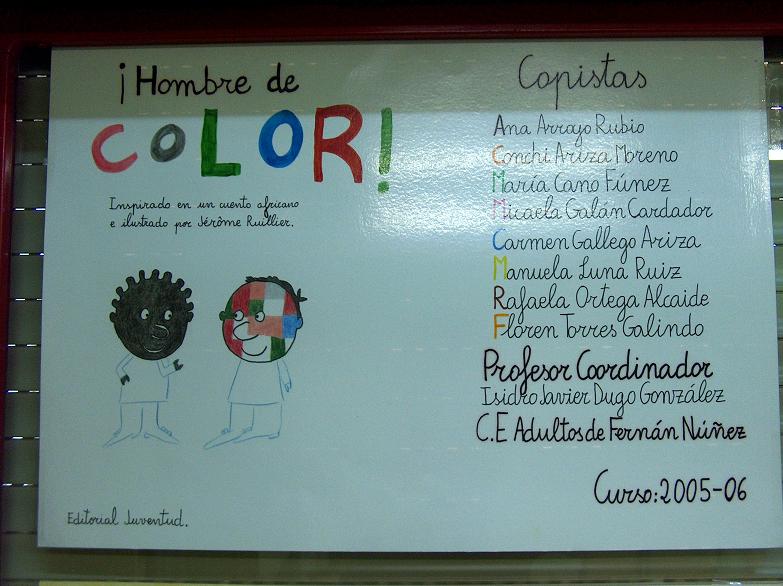 ¡Hombre de
COLOR!
Inspirado en un cuento africano
e ilustrado por Jérôme Ruillier.
Editorial Juventud.
Copistas
Ana Arroyo Rubio
Conchi Ariza Moreno
María Cano Fúnez
Micaela Galán Cardador
Carmen Gallego Ariza
Manuela Luna Ruiz
Rafaela Ortega Alcaide
Floren Torres Galindo
Profesor Coordinador
Isidro Javier Dugo González
C.E Adultos de Fernán Núñez
Curso: 2005-06